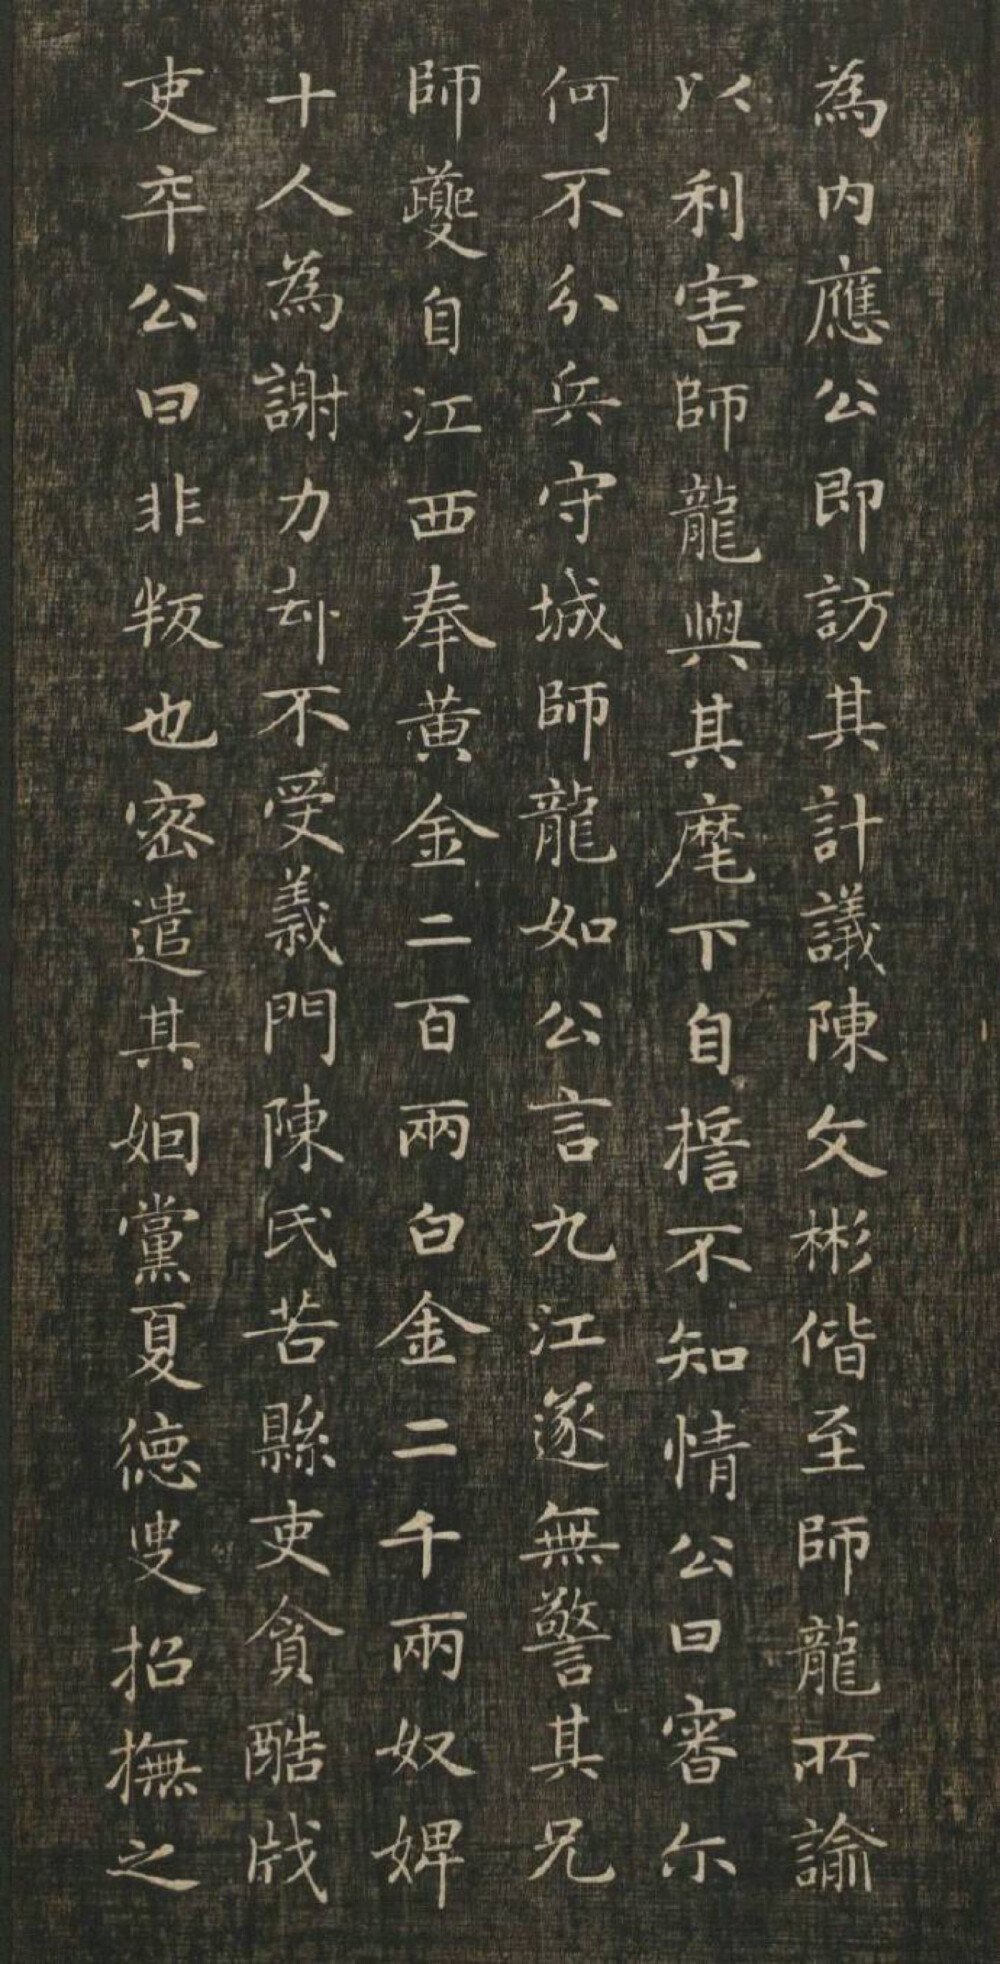 為内應公即訪其計議陳文彬偕至師龍所諭
以利害師龍與其麾下自擔不知情公曰審尒
何不分兵守城師龍如公言九江遂無警其兄
師夔自江西奉黄金二百兩白金二千兩奴婢
十人為謝力却不受義門陳氏苦縣吏貪酷戕
吏卒公曰非叛也密遣其姻黨夏德叟招撫之